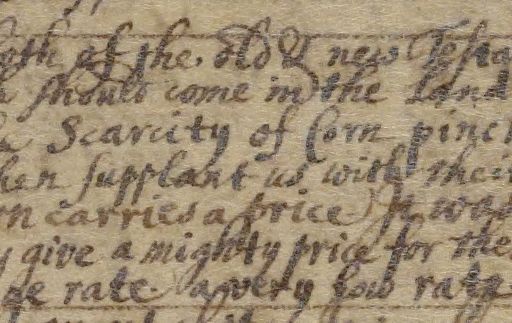 oth of the old & new Testa
should come in the land
Scarcity of Corn pinch
hen supplant us with their
rn carries a price It was
y give a mighty price for the
ge rate a very low rate